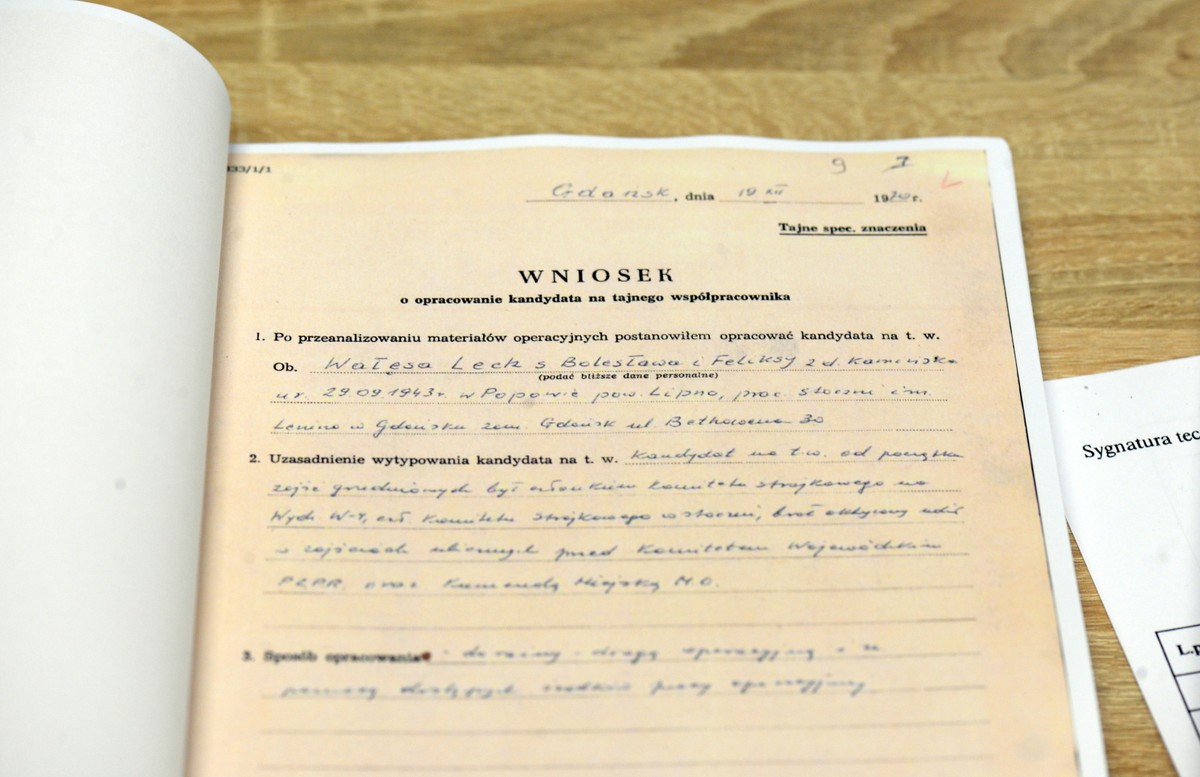 333/1/1
9 I
Gdańsk, dnia 19 XII 1970 r.
Tajne spec. znaczenia
WNIOSEK
o opracowanie kandydata na tajnego współpracownika
1. Po przeanalizowaniu materiałów operacyjnych postanowiłem opracować kandydata na t. w.
Ob. Wałęsa Lech s Bolesława i Feliksy z d. Kamińska
(podać bliższe dane personalne)
ur. 29.09.1943r. w Popowie pow. Lipno, prac. stoczni im.
Lenina w Gdańsku zam. Gdańsk ul. Bethowena 30
2. Uzasadnienie wytypowania kandydata na t. w. Kandydat na t.w. od początku
zajść grudniowych był członkiem komitetu strajkowego na
Wydz W-4, czł. Komitetu Strajkowego w stoczni, brał aktywny udział
w zajściach ulicznych przed Komitetem Wojewódzkim
PZPR. oraz Komendą Miejską M.O.
3. Sposób opracowania - drogą operacyjną i za
pomocą dostępnych środków pracy operacyjnej
Sygnatura tec
L.p